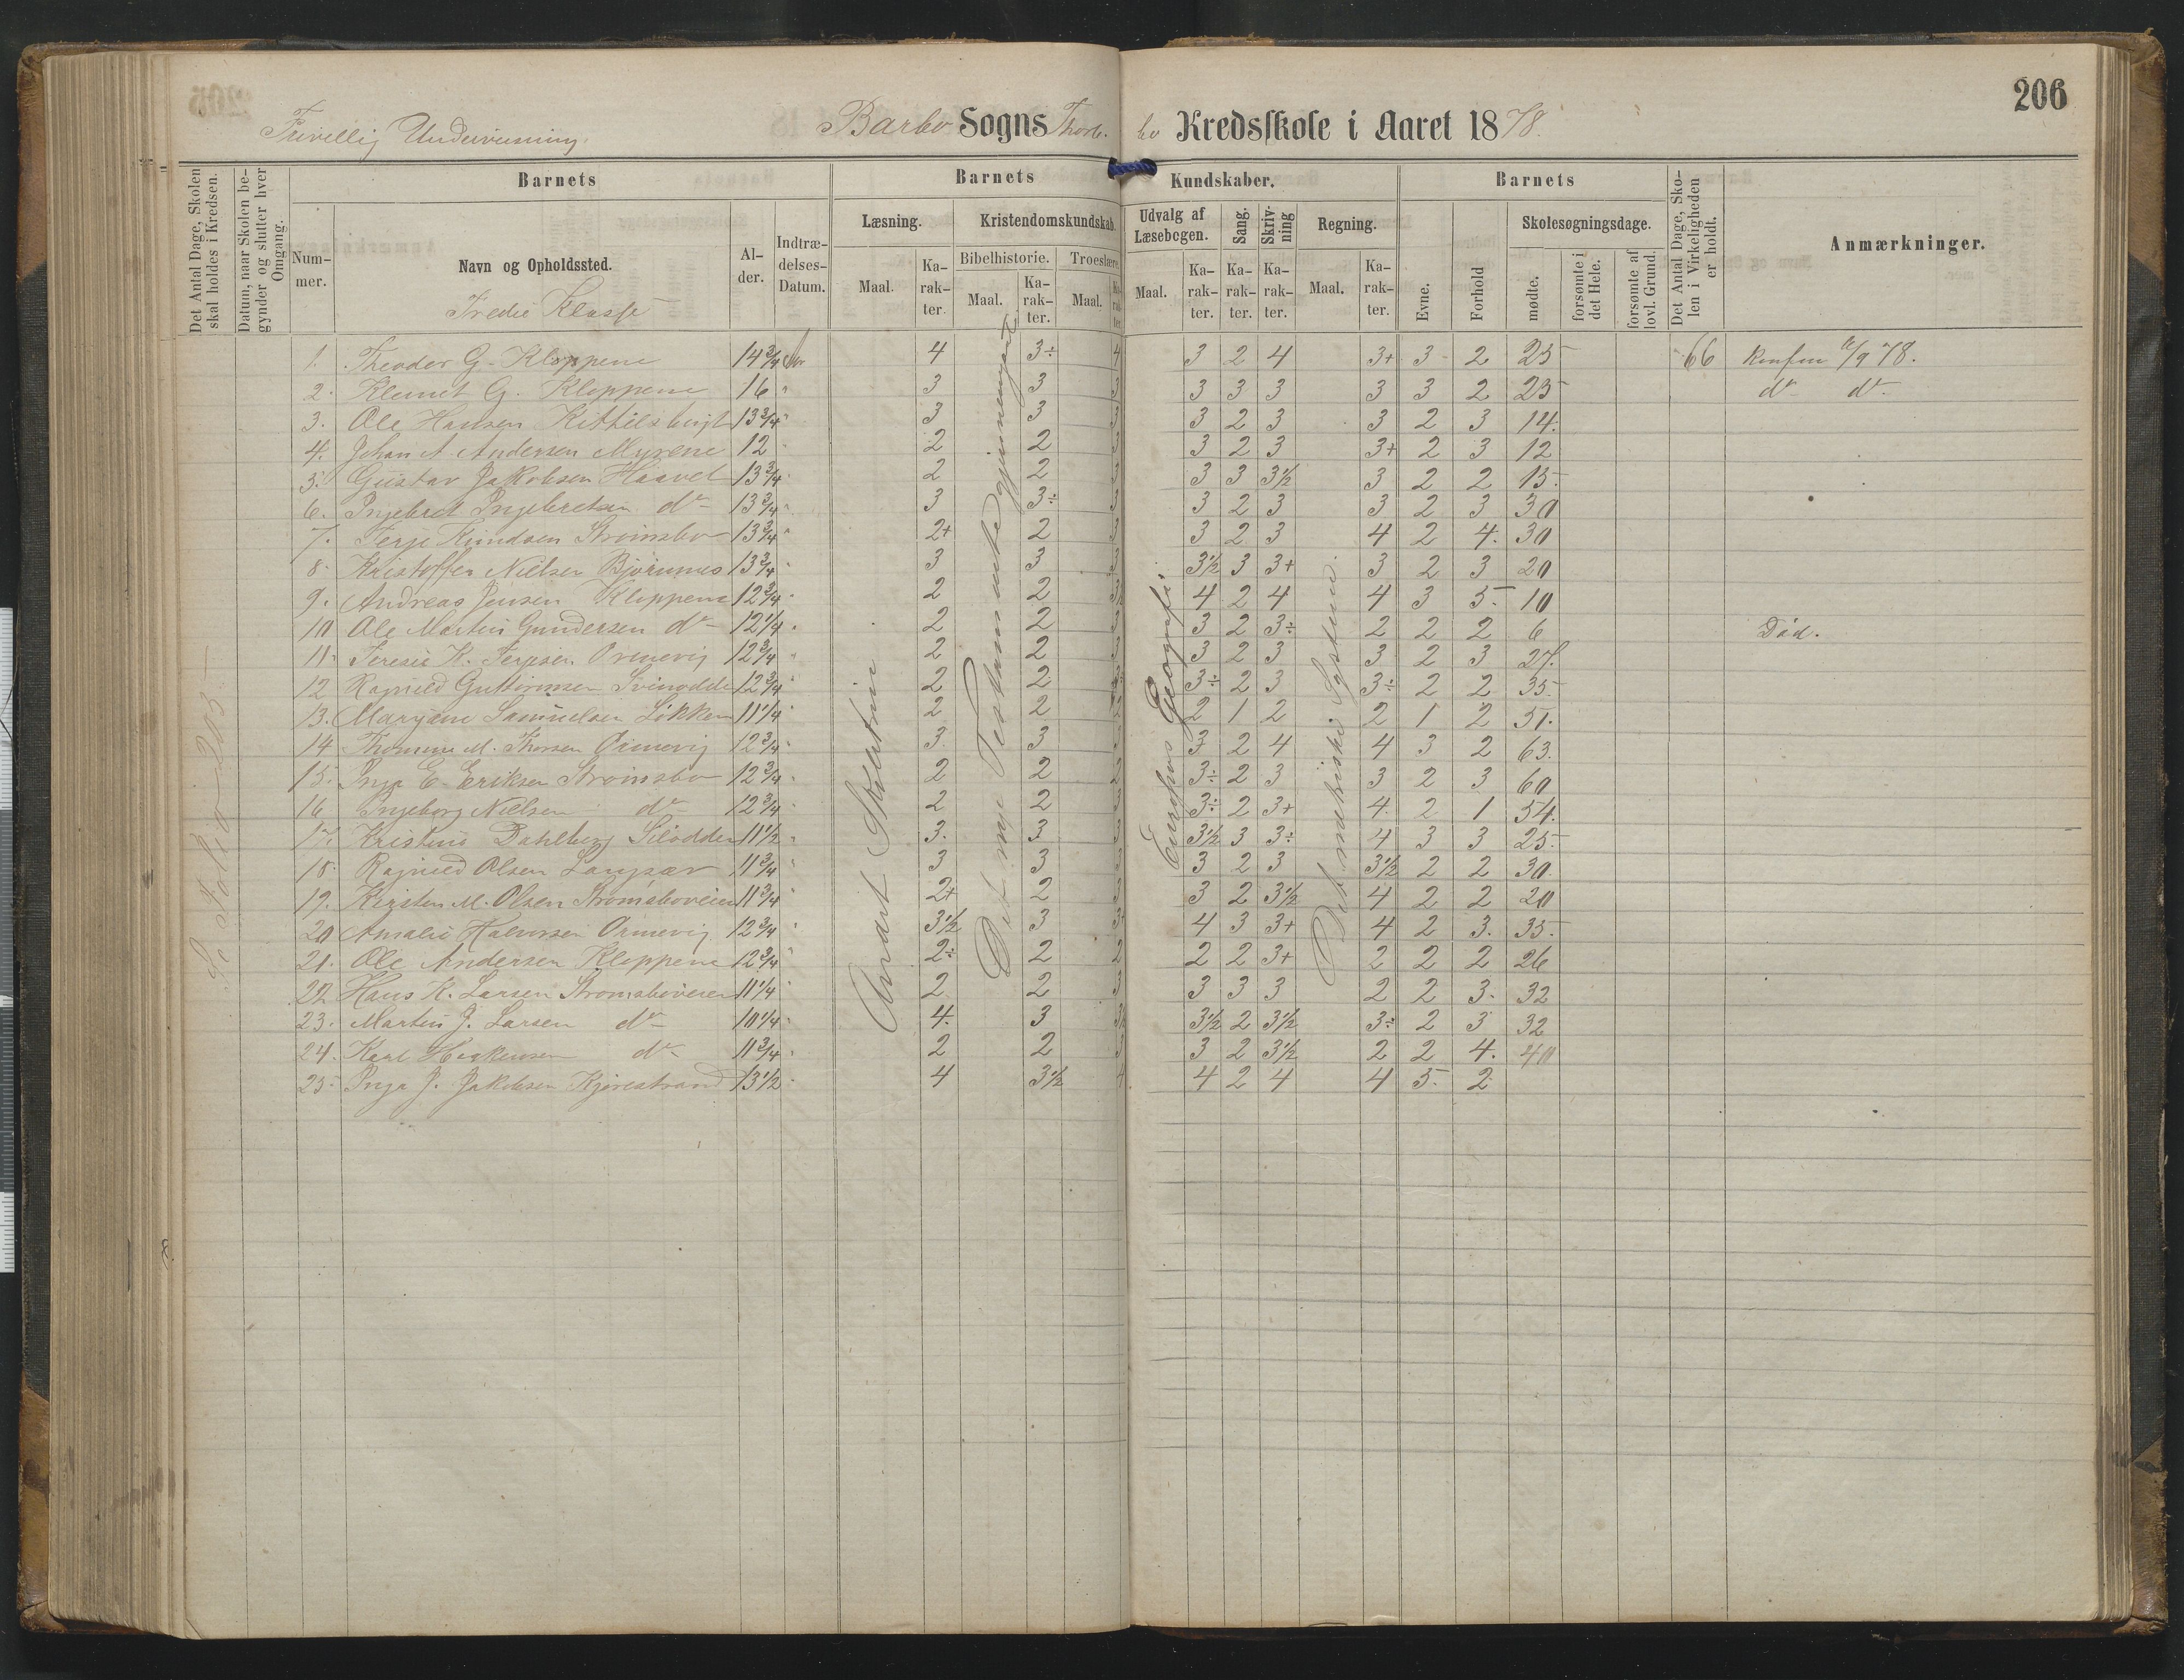 206
Frivillig Underviisning.
Barbo Sogns Thorbo Kredsskole i Aaret 1878.
Det Antal Dage, Skolen skal holdes i Kredsen.
Datum, naar Skolen begynder og slutter hver Omgang.
Barnets
Barnets
Kundskaber.
Barnets
Det Antal Dage, Skolen i Virkeligheden er holdt.
Anmærkninger.
Nummer.
Navn og Opholdssted.
Alder.
Indtrædelses-Datum.
Læsning.
Kristendomskundskab.
Bibelhistorie.
Troeslære.
Udvalg af Læsebogen.
Sang.
Skrivning
Regning.
Evne.
Forhold
Skolesøgningsdage.
Maal.
Karakter.
Maal.
Karakter.
Maal.
Karakter.
Maal.
Karakter.
Karakter.
Karakter.
Maal.
Karakter.
mødte.
forsømte i det Hele.
forsømte af lovl. Grund.
Tredie Klasse
Se Folio 205
Det nye Testamente gjennemgaaet
Europas Geografi
Det metriske System.
1. Theodor G. Kloppene 14 3/4 4 3÷ 4 3 2 4 3+ 3 2 25 66 Konfm 6/9 78.
2. Klemet G. Kloppene 16 " 3 3 3 3 3 3 3 3 2 25 do do
3. Ole Hansen Kittelsbugt 13 3/4 " 3 3 3 3 2 3 3 2 3 14.
4. Johan A. Andersen Myrene 12 " 2 2 3 3 2 3 3+ 2 3 12
5. Gustav Jakobsen Haavet 13 3/4 " 2 2 3 3 3 3 1/2 3 2 2 15.
6. Ingebret Ingebretsen do 13 3/4 " 3 3÷ 3 3 2 3 3 2 3 30
7. Terje Knudsen Strømsbo 13 3/4 " 2+ 2 3 3 2 3 4 2 4. 30
8. Kristoffer Nielsen Bjørnnes 13 3/4 " 3 3 3 3 1/2 3 3+ 3 2 3 20
9. Andreas Jensen Kloppene 12 3/4 " 2 2 3 1/2 4 2 4 4 3 5. 10
10 Ole Martin Gundersen do 12 1/4 " 2 2 3 3 2 3÷ 2 2 2 6 Død.
11. Teresie K. Terjesen Ormevig 12 3/4 " 2 2 3 3 2 3 3 2 3 27.
12 Ragnild Guttormsen Svinodde 12 3/4 " 2 2 3÷ 2 3 3÷ 2 2 35.
13. Maryane Samuelsen Løkken 11 1/4 " 2 2 2 2 1 2 2 1 2 51.
14 Thomine M. Thorsen Ormevig 12 3/4 " 3 3 3 2 4 4 3 2 63.
15. Inga E. Eriksen Strømsbo 12 3/4 " 2 2 2 3÷ 2 3 3 2 3 60
16 Ingeborg Nielsen do 12 3/4 " 2 2 3 3÷ 2 3+ 4. 2 1 54.
17. Kristine Dahlberg Silodden 11 1/2 " 3. 3 3 3 1/2 3 3÷ 4 3 3 25.
18. Ragnild Olsen Langsæv 11 3/4 " 3 3 3 3 2 3 3 1/2 2 2 30.
19. Kirsten M. Olsen Strømsboveien 11 3/4 " 2+ 2 3 3 2 3 1/2 4 2 2 20
20 Amalie Halvorsen Ormevig 12 3/4 " 3 1/2 3 3+ 4 3 3+ 4 2 3. 35.
21. Ole Andersen Kloppene 12 3/4 " 2÷ 2 2 2 2 3+ 2 2 2 26
22 Hans K. Larsen Strømsboveien 11 1/4 " 2 2 3 3 3 3 2 2 3. 32
23. Martin J. Larsen do 10 1/4 " 4. 3 3 1/2 3 1/2 2 3 1/2 3÷ 2 3 32
24. Karl Haakensen do 11 3/4 " 2 2 3 3 2 3 1/2 2 2 4. 40
25. Inga J. Jakobsen Kjørestrand 13 1/2 " 4 3 1/2 4 4 2 4 4 5. 2.